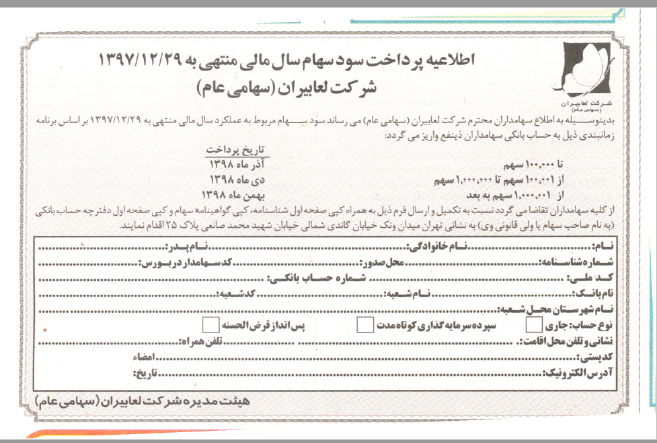 اطلاعیه پرداخت سود سهام سال مالی منتهی به ۱۳۹۷/۱۲/۲۹
شرکت لعابیران (سهامی عام)
شرکت لعابیران
(سهامی عام)
بدینوسیله به اطلاع سهامداران محترم شرکت لعابیران (سهامی عام) می رساند سود سهام مربوط به عملکرد سال مالی منتهی به ۱۳۹۷/۱۲/۲۹ بر اساس برنامه
زمانبندی ذیل به حساب بانکی سهامداران ذینفع واریز می گردد:
تاریخ پرداخت
تا ۱۰۰,۰۰۰ سهم آذر ماه ۱۳۹۸
از ۱۰۰,۰۰۱ سهم تا ۱,۰۰۰,۰۰۰ سهم دی ماه ۱۳۹۸
از ۱,۰۰۰,۰۰۱ سهم به بعد بهمن ماه ۱۳۹۸
از کلیه سهامداران تقاضا می گردد نسبت به تکمیل و ارسال فرم ذیل به همراه کپی صفحه اول شناسنامه، کپی گواهینامه سهام و کپی صفحه اول دفترچه حساب بانکی
(به نام صاحب سهام یا ولی قانونی وی) به نشانی تهران میدان ونک خیابان گاندی شمالی خیابان شهید محمد صانعی پلاک ۲۵ اقدام نمایند.
نام: نام خانوادگی: نام پدر:
شماره شناسنامه: محل صدور: کد سهامدار در بورس:
کد ملی: شماره حساب بانکی:
نام بانک: نام شعبه: کد شعبه:
نام شهرستان محل شعبه:
نوع حساب: جاری سپرده سرمایه گذاری کوتاه مدت پس انداز قرض الحسنه
نشانی و تلفن محل اقامت: تلفن همراه:
کدپستی: امضاء
آدرس الکترونیک: تاریخ:
هیئت مدیره شرکت لعابیران (سهامی عام)